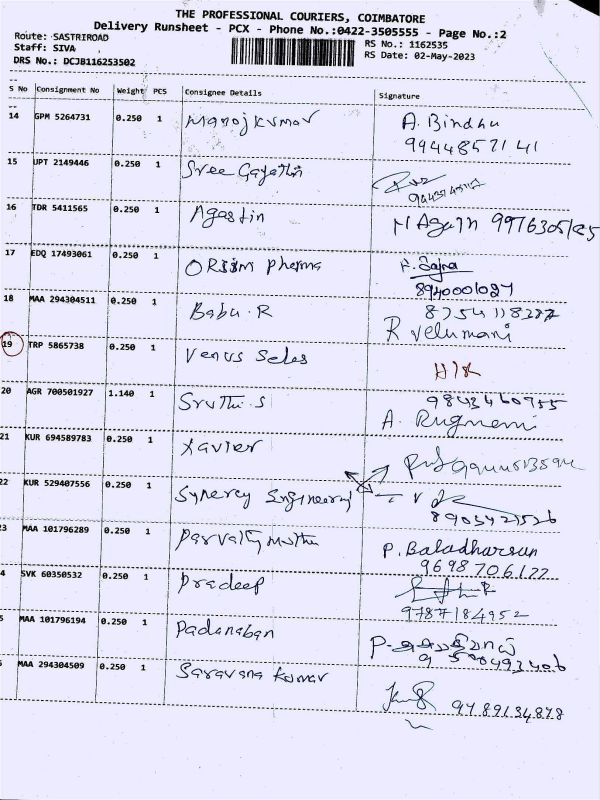 THE PROFESSIONAL COURIERS, COIMBATORE
Delivery Runsheet - PCX - Phone No.:0422-3505555 - Page No.:2
Route: SASTRIROAD
RS No.: 1162535
Staff: SIVA
RS Date: 02-May-2023
DRS No.: DCJB116253502
S No Consignment No Weight PCS Consignee Details Signature
14 GPM 5264731 0.250 1 Manojkumar A. Bindhu
9944857141
15 UPT 2149446 0.250 1 Sree Gayathri
16 TDR 5411565 0.250 1 Agastin
17 EDQ 17493061 0.250 1 Pharma
8940001027
18 MAA 294304511 0.250 1 Babu.R
R Velumani
19 TRP 5865738 0.250 1 Venus Sales
20 AGR 700501927 1.140 1 Sruthi.S
A.
21 KUR 694589783 0.250 1 Xavier
22 KUR 529407556 0.250 1 Synergy Engineering
3 MAA 101796289 0.250 1 Parvathymuthu P. Baladharsan
9698706122
4 SVK 60350532 0.250 1 Pradeep
9787184952
MAA 101796194 0.250 1 Padanaban
MAA 294304509 0.250 1 Saravana Kumar
9789134878